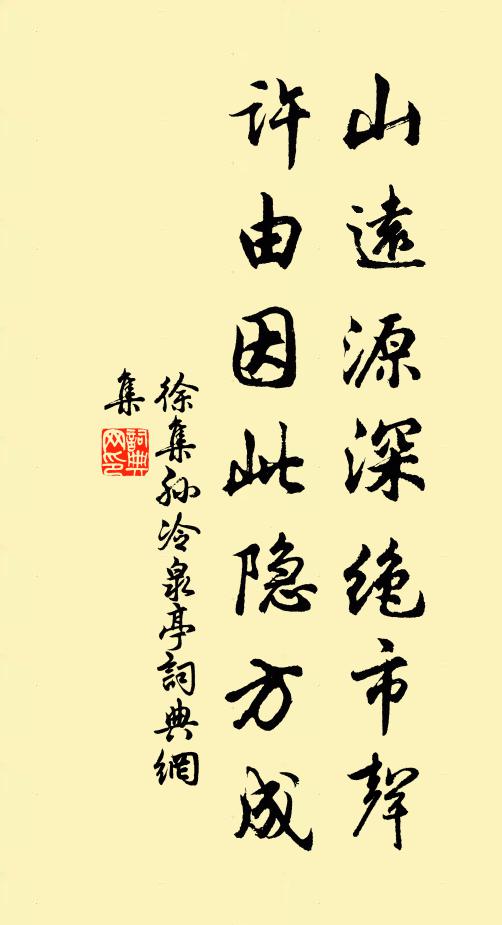 山遠源深絶市聲
許由因此隐方成
徐集孫冷泉亭詞典網
集
詞典网印